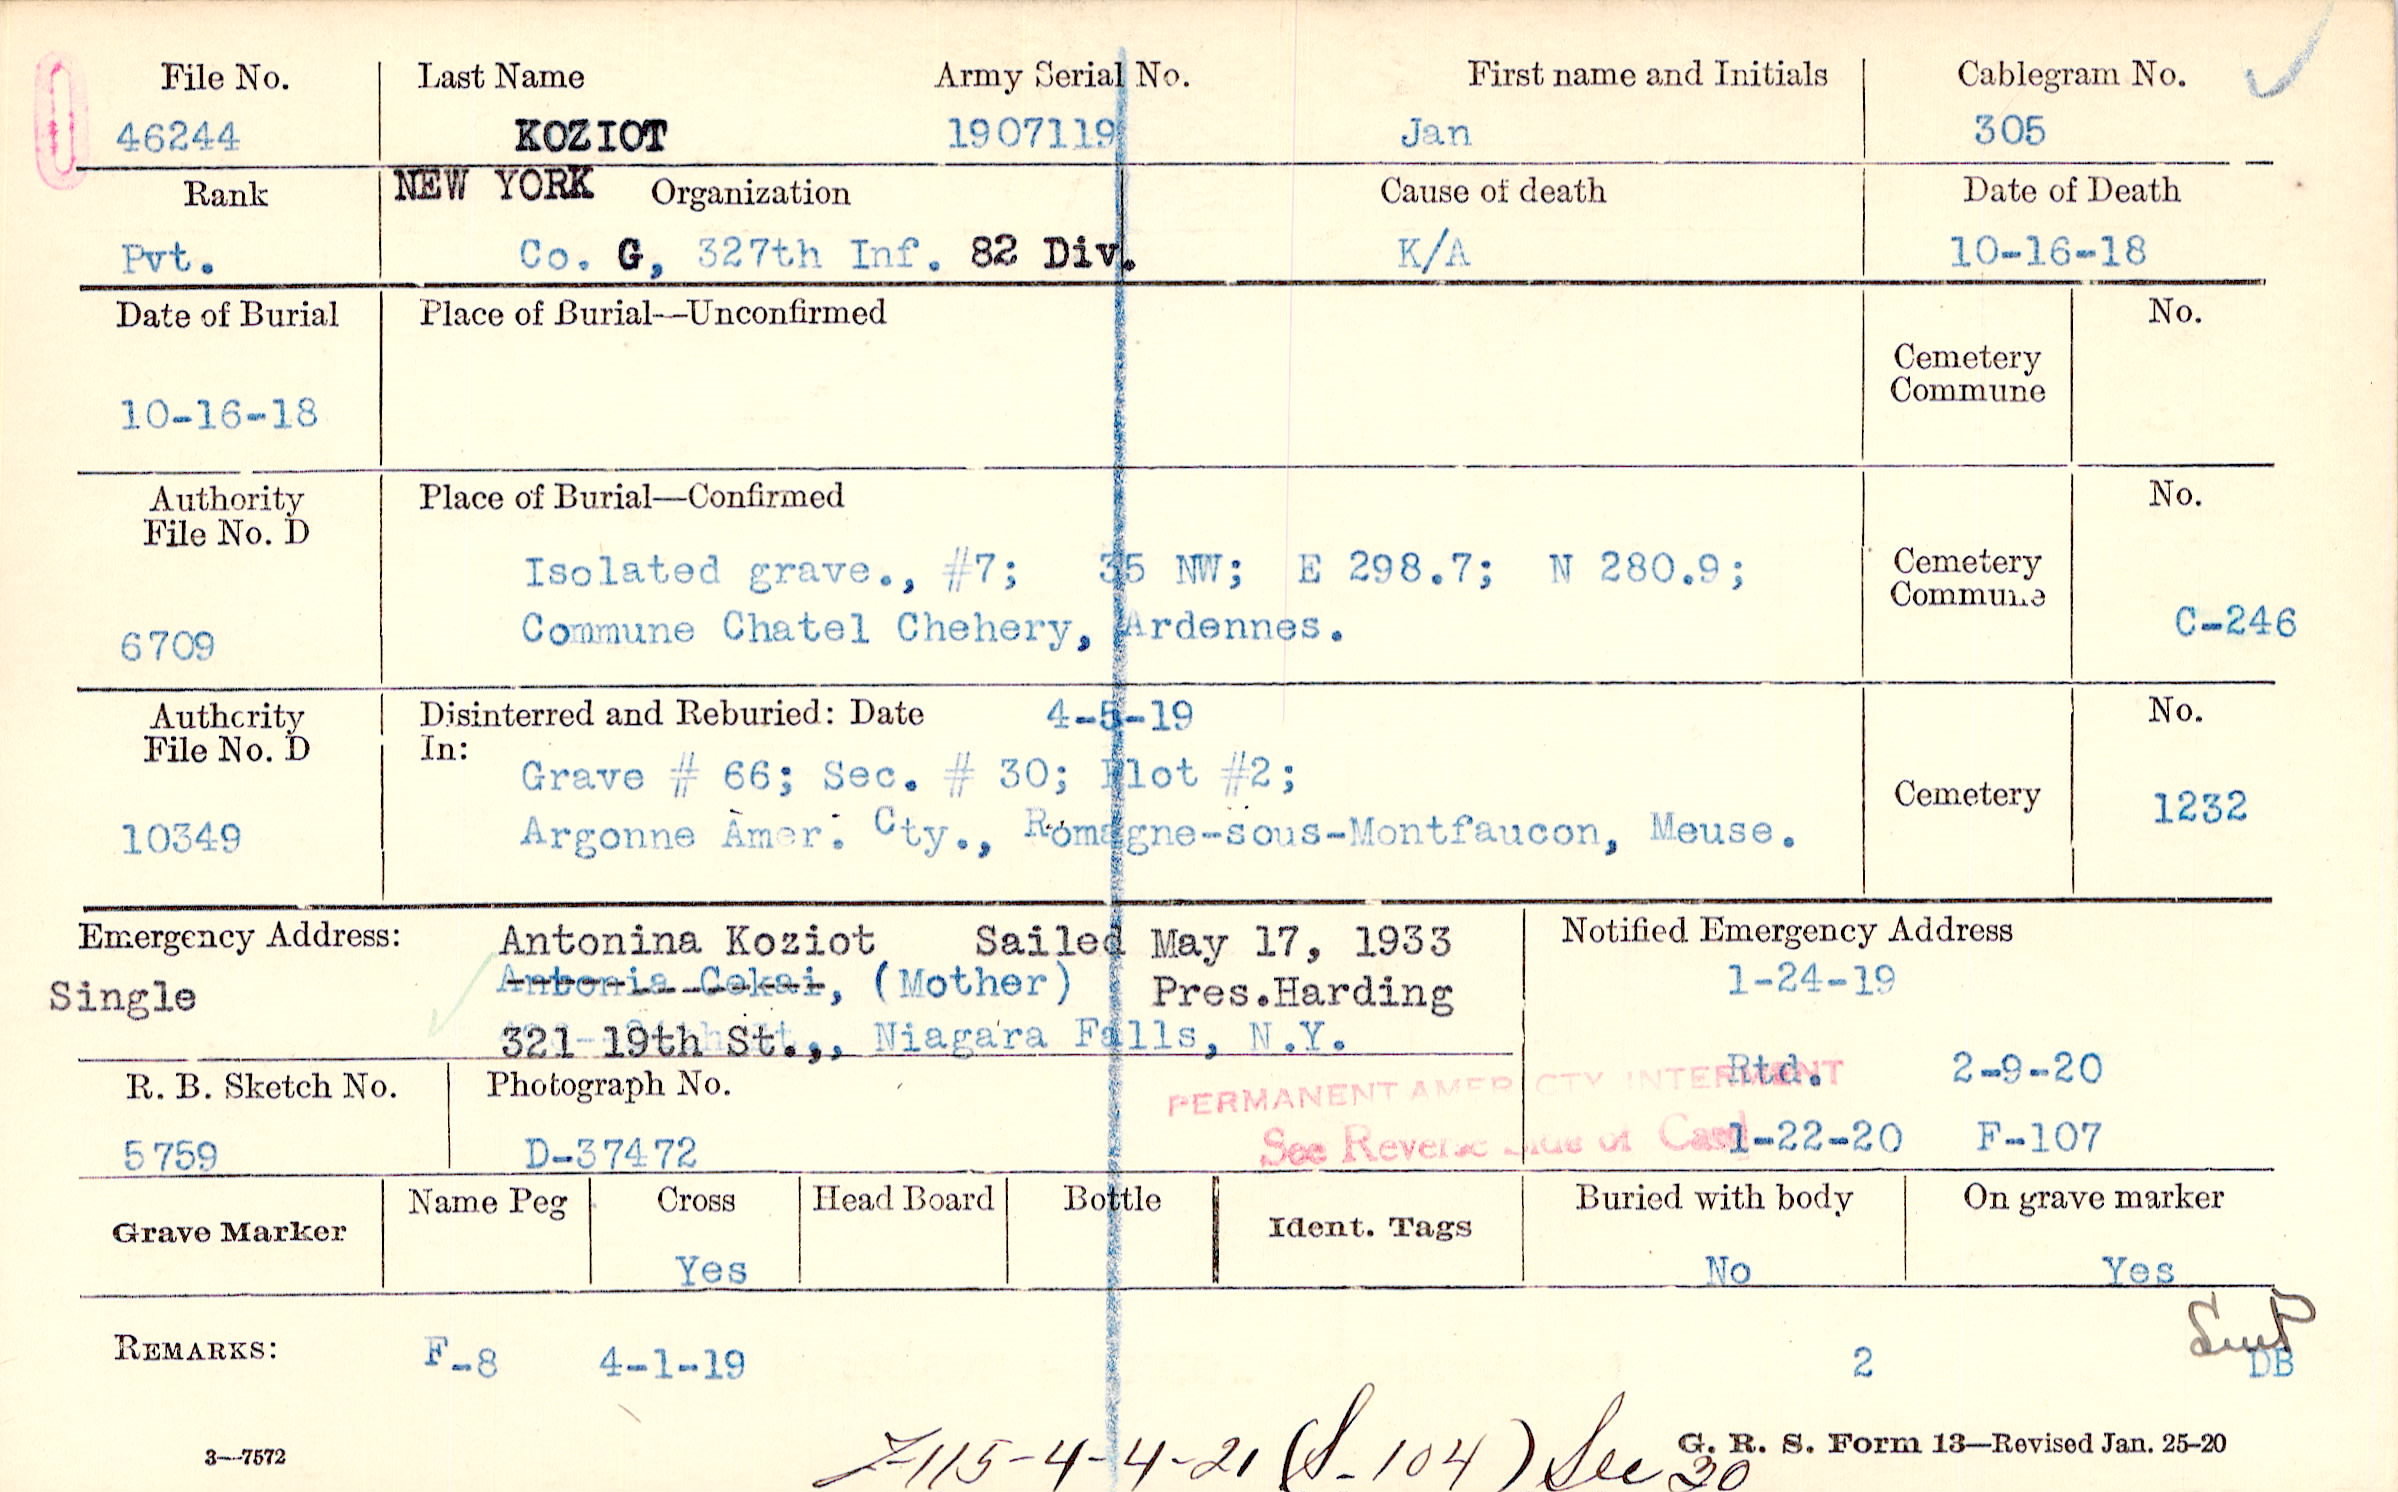 File No. Last Name Army Serial No. First name and Initials Cablegram No.
46244 KOZIOT 1907119 Jan 305
Rank NEW YORK Organization Cause of death Date of Death
Pvt. Co. G, 327th Inf. 82 Div. K/A 10-16-18
Date of Burial Place of Burial—Unconfirmed No.
Cemetery
Commune
10-16-18
Authority Place of Burial—Confirmed No.
File No. D
Isolated grave., #7; 35 NW; E 298.7; N 280.9; Cemetery
Commune
6709 Commune Chatel Chehery, Ardennes. C-246
Authority Disinterred and Reburied: Date 4-5-19 No.
File No. D In:
Grave # 66; Sec. # 30; Plot #2; Cemetery
10349 Argonne Amer. Cty., Romagne-sous-Montfaucon, Meuse. 1232
Emergency Address: Antonina Koziot Sailed May 17, 1933 Notified Emergency Address
Single Antonia Cekai, (Mother) Pres.Harding 1-24-19
321 19th St.,, Niagara Falls, N.Y.
Rtd. 2-9-20
R. B. Sketch No. Photograph No. PERMANENT AMER CTY INTERMENT
5759 D-37472 See Reverse Side of Card 1-22-20 F-107
Grave Marker Name Peg Cross Head Board Bottle Ident. Tags Buried with body On grave marker
Yes No Yes
REMARKS: F-8 4-1-19 2 DB
3—7572 G. R. S. Form 13—Revised Jan. 25-20
115-4-4-21 (S-104) See 30